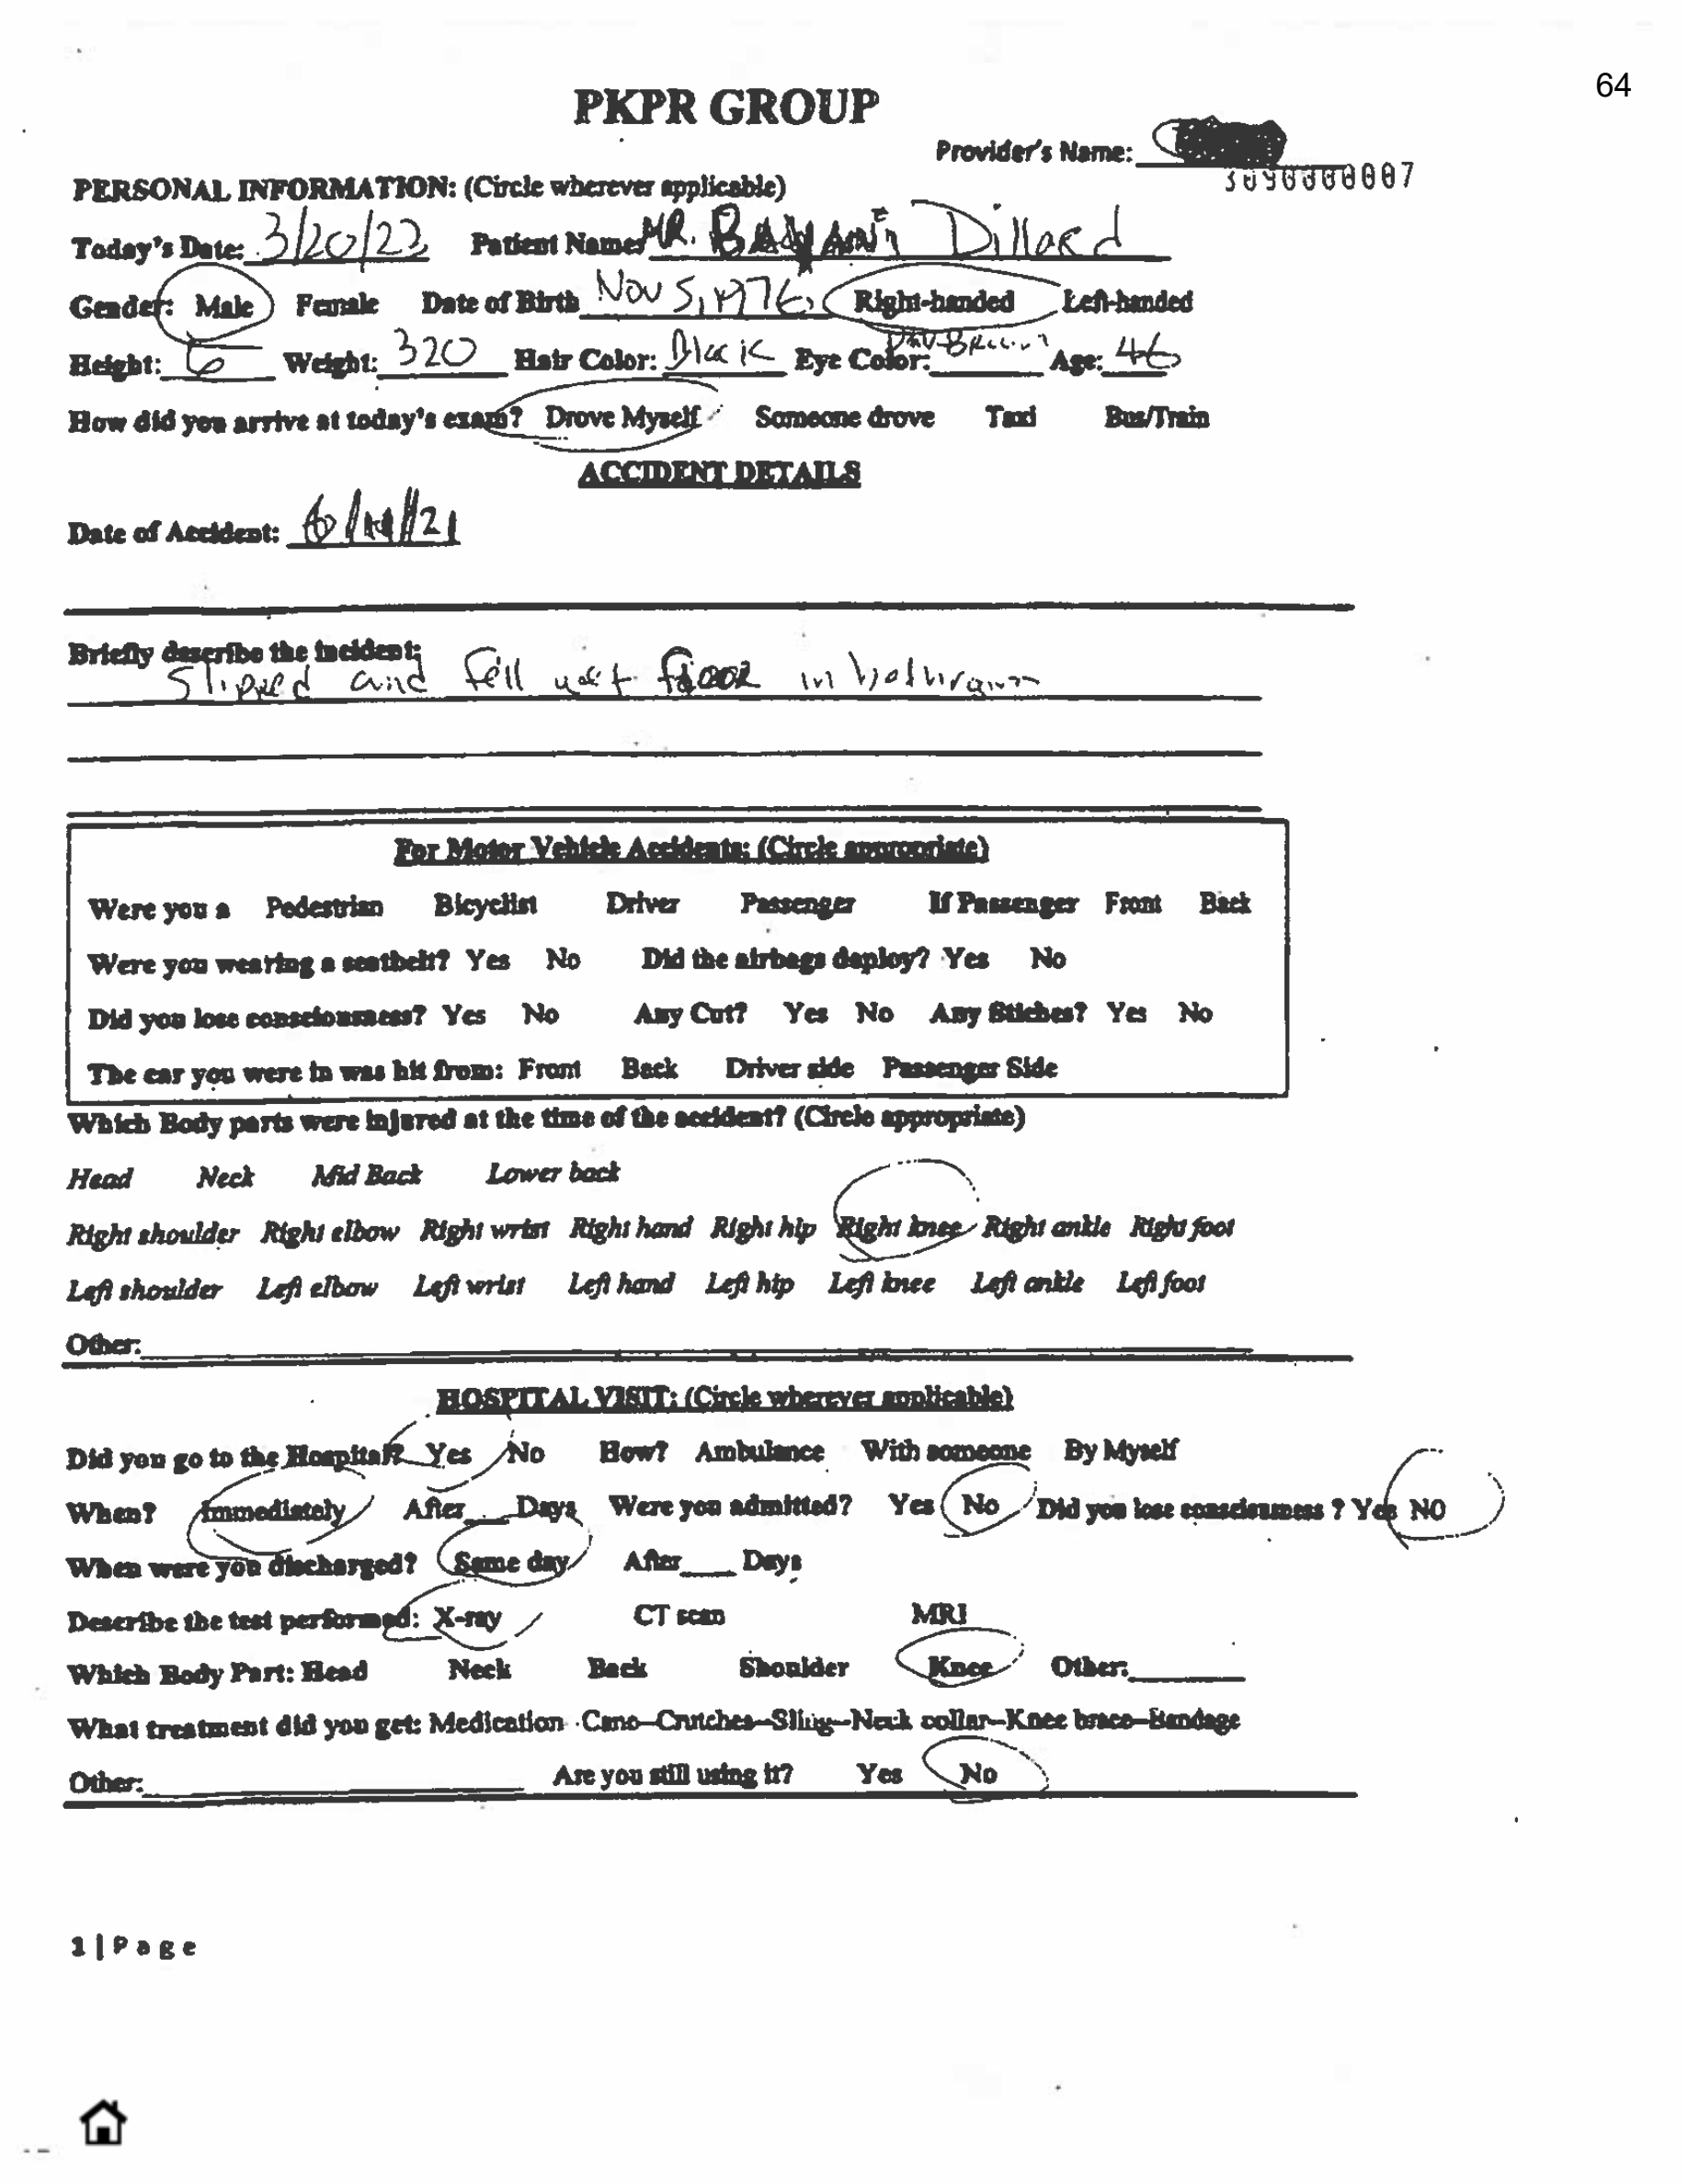 64
PKPR GROUP
Provider's Name:
3090000007
PERSONAL INFORMATION: (Circle wherever applicable)
Today's Date: 3/20/23 Patient Name: MR. Dillard
Gender: Male Female Date of Birth Nov 5, 1976 Right-handed Left-handed
Height: 6 Weight: 320 Hair Color: Black Eye Color: Age: 46
How did you arrive at today's exam? Drove Myself Someone drove Taxi Bus/Train
ACCIDENT DETAILS
Date of Accident:
Briefly describe the incident:
Slipped and fell wet floor in bathroom
For Motor Vehicle Accidents: (Circle appropriate)
Were you a Pedestrian Bicyclist Driver Passenger If Passenger Front Back
Were you wearing a seatbelt? Yes No Did the airbags deploy? Yes No
Did you lose consciousness? Yes No Any Cut? Yes No Any Stiches? Yes No
The car you were in was hit from: Front Back Driver side Passenger Side
Which Body parts were injured at the time of the accident? (Circle appropriate)
Head Neck Mid Back Lower back
Right shoulder Right elbow Right wrist Right hand Right hip Right knee Right ankle Right foot
Left shoulder Left elbow Left wrist Left hand Left hip Left knee Left ankle Left foot
Other:
HOSPITAL VISIT: (Circle wherever applicable)
Did you go to the Hospital? Yes No How? Ambulance With someone By Myself
When? Immediately After___Days Were you admitted? Yes No Did you lose consciousness ? Yes NO
When were you discharged? Same day After____ Days
Describe the test performed: X-ray CT scan MRI
Which Body Part: Head Neck Back Shoulder Knee Other:
What treatment did you get: Medication -Cane-Crutches-Sling-Neck collar-Knee brace-Bandage
Other: Are you still using it? Yes No
1 | Page